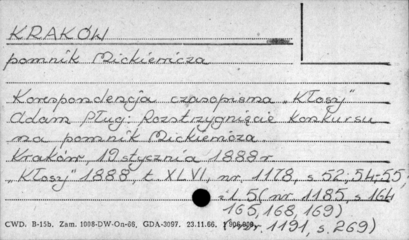 KRAKÓW
pomnik Mickiewicza
Korespondencja czasopisma „Kłosy"
Adam Pług: Rozstrzygnięcie konkursu
na pomnik Mickiewicza.
Kraków, 19 stycznia 1888 r.
„Kłosy" 1888, t. XLVI, nr. 1178, s. 52; 54; 55;
i 5( nr. 1185, s 164
165, 168, 169)
CWD. B-15b. Zam. 1098-DW-On-66, GDA-3097. 23.11.66.
nr. 1191, s. 269)